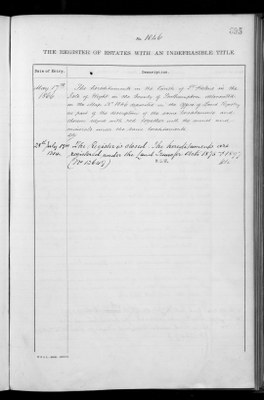 No 1646
THE REGISTER OF ESTATES WITH AN INDEFEASIBLE TITLE
Date of Entry.
Description.
May 17th The Hereditaments in the Parish of St Helens in the
1866 Isle of Wight in the County of Southampton
on the Map No 1646 deposited in the Office of Land Registry
as part of the description of the same hereditaments and
thereon edged with red together with the mines and
minerals under the same hereditaments
28th July The Register is closed. The hereditaments are
registered under the Land Transfer Acts 1875 & 1897